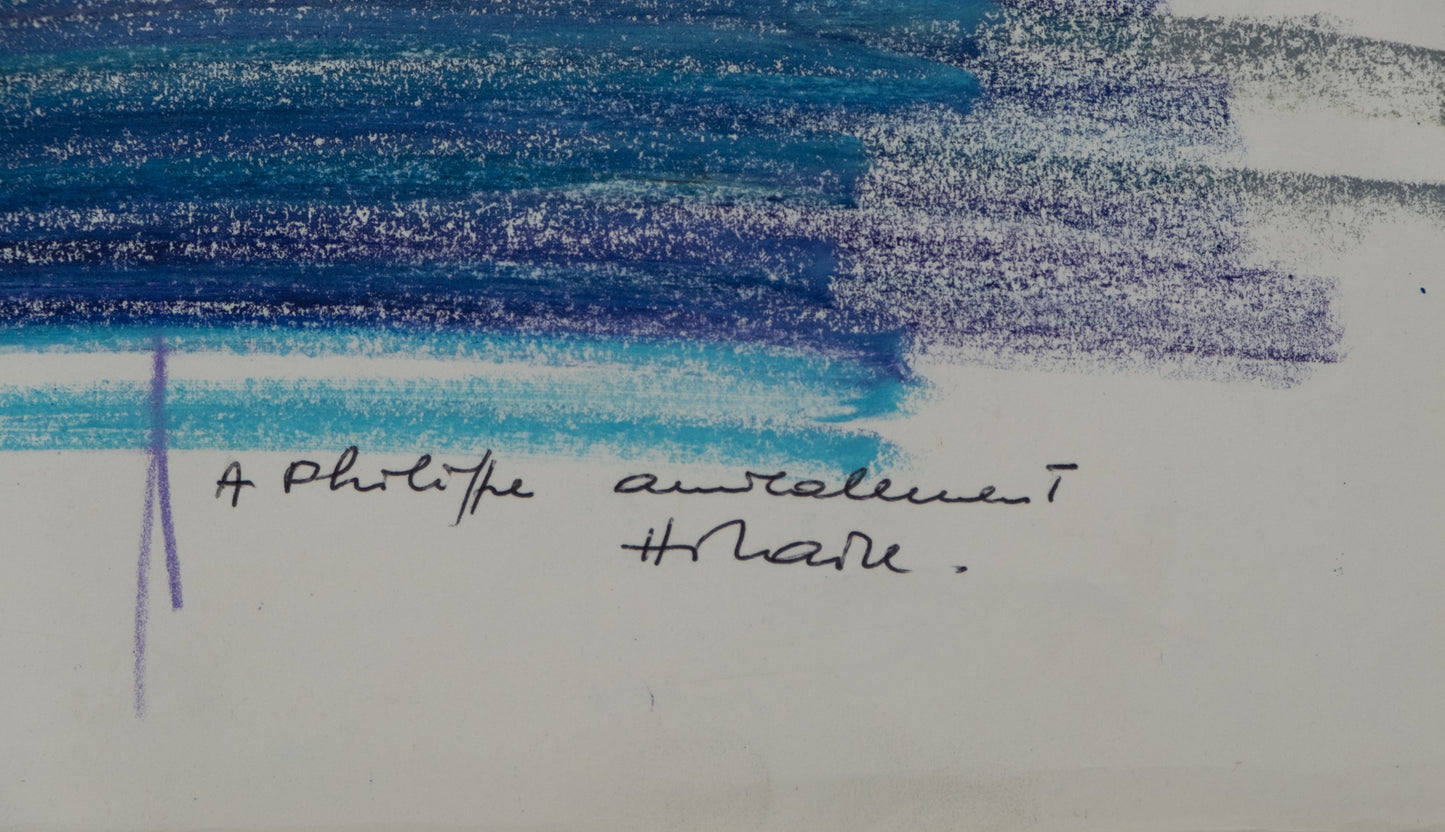 A Philippe amicalement
Hilaire.